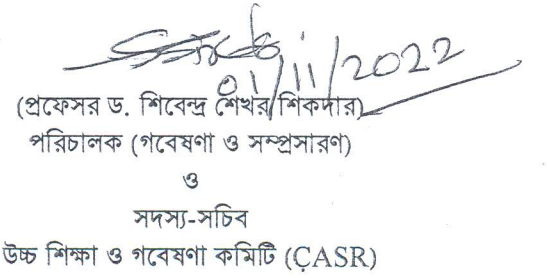 01/11/2022
(প্রফেসর ড. শিবেন্দ্র শেখর শিকদার)
পরিচালক (গবেষণা ও সম্প্রসারণ)
ও
সদস্য-সচিব
উচ্চ শিক্ষা ও গবেষণা কমিটি (CASR)